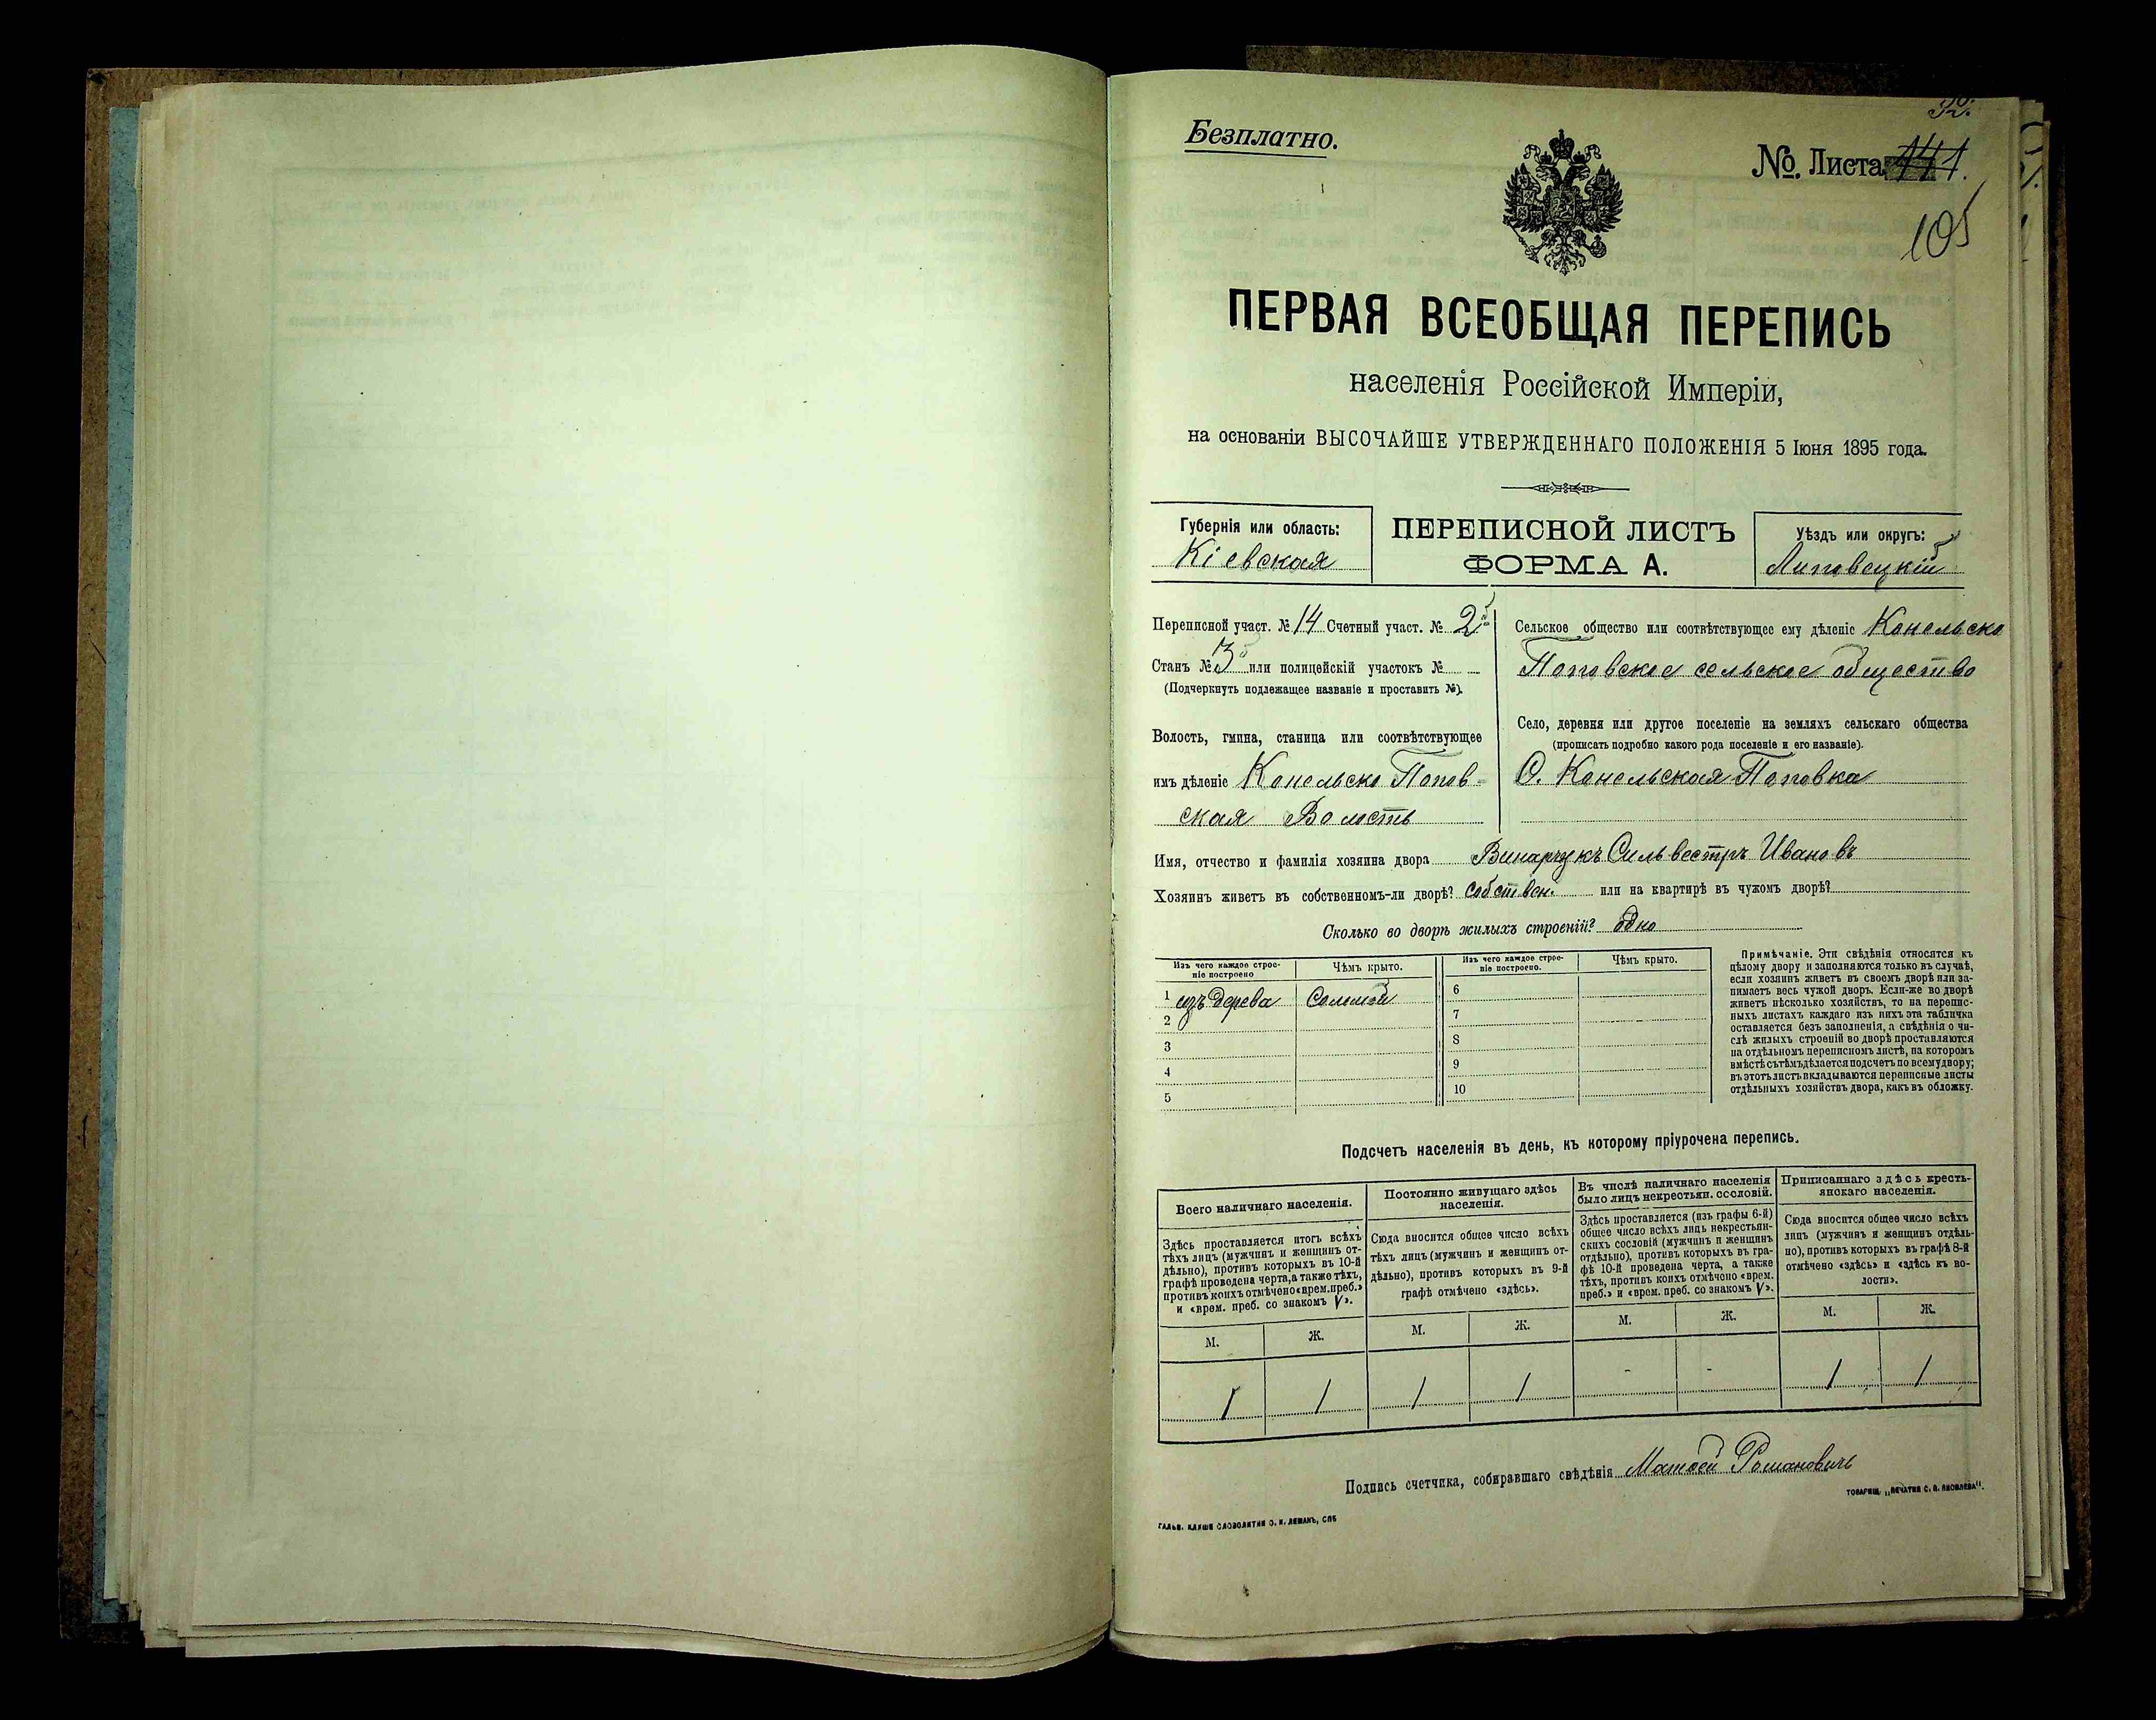 Безплатно.
№. Листа 141.
105
ПЕРВАЯ ВСЕОБЩАЯ ПЕРЕПИСЬ
населенія Россійской Имперіи,
на основаніи ВЫСОЧАЙШЕ УТВЕРЖДЕННАГО ПОЛОЖЕНІЯ 5 Іюня 1895 года.
Губернія или область:
Кіевская
ПЕРЕПИСНОЙ ЛИСТЪ
ФОРМА А.
Уѣздъ или округъ:
Липовецкій
Переписной участ. № 14 Счетный участ. № 2
Станъ № 3 или полицейскій участокъ №
(Подчеркнуть подлежащее названіе и проставить №).
Волость, гмина, станица или соотвѣтствующее
имъ дѣленіе Конельско Попов-
ская Волость
Сельское общество или соотвѣтствующее ему дѣленіе Конельско
Поповское сельское общество
Село, деревня или другое поселеніе на земляхъ сельскаго общества
(прописать подробно какого рода поселеніе и его названіе).
С. Конельская Поповка
Имя, отчество и фамилія хозяина двора Винарчукъ Сильвестръ Ивановъ
Хозяинъ живетъ въ собственномъ-ли дворѣ? Собствен. или на квартирѣ въ чужомъ дворѣ?
Сколько во дворѣ жилыхъ строеній? одно
Изъ чего каждое строе-
ніе построено
Чѣмъ крыто.
Изъ чего каждое строе-
ніе построено.
Чѣмъ крыто.
1 изъ дерева Соломой
2
3
4
5
6
7
8
9
10
Примѣчаніе. Эти свѣдѣнія относятся къ
цѣлому двору и заполняются только въ случаѣ,
если хозяинъ живетъ въ своемъ дворѣ или за-
нимаетъ весь чужой дворъ. Если-же во дворѣ
живетъ нѣсколько хозяйствъ, то на перепис-
ныхъ листахъ каждаго изъ нихъ эта табличка
оставляется безъ заполненія, а свѣдѣнія о чи-
слѣ жилыхъ строеній во дворѣ проставляются
на отдѣльномъ переписномъ листѣ, на которомъ
вмѣстѣ съ тѣмъ дѣлается подсчетъ по всему двору;
въ этотъ листъ вкладываются переписные листы
отдѣльныхъ хозяйствъ двора, какъ въ обложку.
Подсчетъ населенія въ день, къ которому пріурочена перепись.
Всего наличнаго населенія.
Здѣсь проставляется итогъ всѣхъ
тѣхъ лицъ (мужчинъ и женщинъ от-
дѣльно), противъ которыхъ въ 10-й
графѣ проведена черта, а также тѣхъ,
противъ коихъ отмѣчено «врем. преб.»
и «врем. преб. со знакомъ V».
Постоянно живущаго здѣсь
населенія.
Сюда вносится общее число всѣхъ
тѣхъ лицъ (мужчинъ и женщинъ от-
дѣльно), противъ которыхъ въ 9-й
графѣ отмѣчено «здѣсь».
Въ числѣ наличнаго населенія
было лицъ некрестьян. сословій.
Здѣсь проставляется (изъ графы 6-й)
общее число всѣхъ лицъ некрестьян-
скихъ сословій (мужчинъ и женщинъ
отдѣльно), противъ которыхъ въ гра-
фѣ 10-й проведена черта, а также
тѣхъ, противъ коихъ отмѣчено «врем.
преб.» и «врем. преб. со знакомъ V».
Приписаннаго здѣсь кресть-
янскаго населенія.
Сюда вносится общее число всѣхъ
лицъ (мужчинъ и женщинъ отдѣль-
но), противъ которыхъ въ графѣ 8-й
отмѣчено «здѣсь» и «здѣсь къ во-
лости».
М. Ж. М. Ж. М. Ж. М. Ж.
1 1 1 1 - - 1 1
Подпись счетчика, собиравшаго свѣдѣнія Матвей Романовичъ
ТОВАРИЩ. „ПЕЧАТНЯ С. П. ЯКОВЛЕВА".
ГАЛЬВ. КЛИШЕ СЛОВОЛИТНИ О. И. ЛЕМАНЪ, СПБ